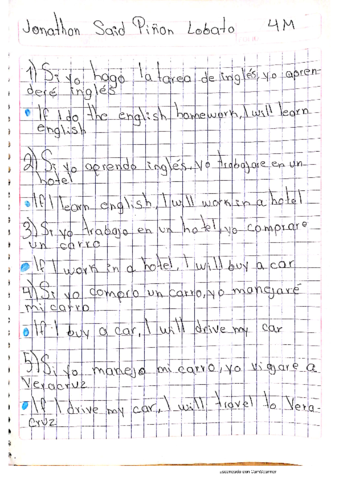 Jonathon Said Piñon Lobato 4M
1) Si yo hago la tarea de inglés, yo apren-
deré inglés
If I do the english homework, I will learn
english
2) Si yo aprendo inglés, yo trabajare en un
hotel
If I learn english, I will work in a hotel
3) Si yo trabajo en un hotel, yo comprare
un carro
If I work in a hotel, I will buy a car
4) Si yo compro un carro, yo manejaré
mi carro
If I buy a car, I will drive my car
5) Si yo manejo mi carro, yo viajare a
Veracruz
If I drive my car, I will travel to Vera-
cruz
Escaneado con CamScanner